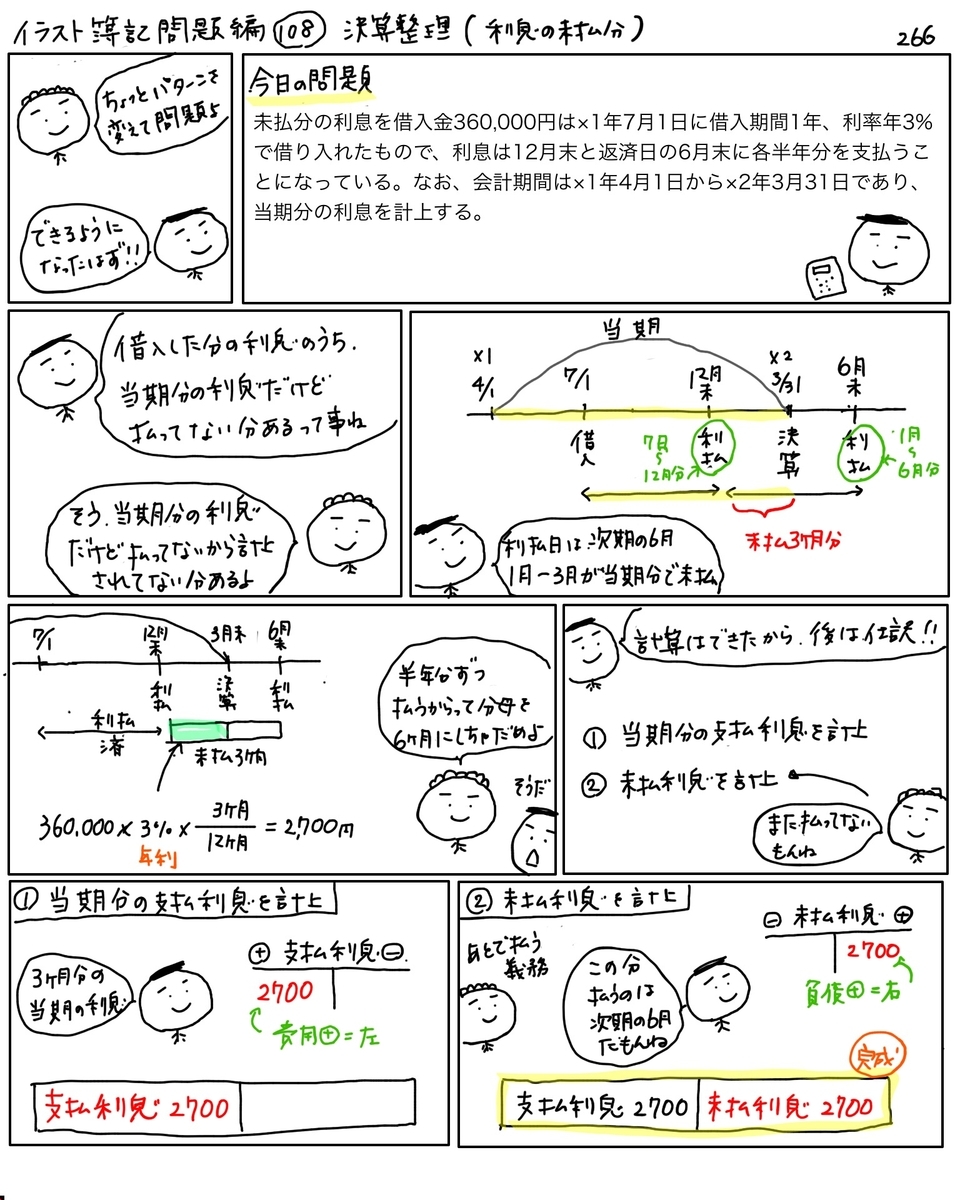 イラスト簿記問題編 108 決算整理(利息の未払分)
266
ちょっとパターンを
変えて問題よ
できるように
なったはず!!
今日の問題
未払分の利息を借入金360,000円は×1年7月1日に借入期間1年、利率年3%
で借り入れたもので、利息は12月末と返済日の6月末に各半年分を支払うこ
とになっている。なお、会計期間は×1年4月1日から×2年3月31日であり、
当期分の利息を計上する。
借入した分の利息のうち、
当期分の利息だけど
払ってない分あるって事ね
そう、当期分の利息
だけど払ってないから計上
されてない分あるよ
当期
×1
4/1
7/1
12月
末
×2
3/31
6月
末
借
入
7月
〜
12月分
利
払
決
算
利
払
1月
〜
6月分
未払3ヶ月分
利払日は次期の6月
1月ー3月が当期分で未払
7/1
12月
末
3月末
6月
末
利
払
決
算
利
払
利払
済
未払3ヶ月
360,000×3%×3ヶ月/12ヶ月=2,700円
年利
半年分ずつ
払うからって分母を
6ヶ月にしちゃだめよ
そうだ
計算はできたから、後は仕訳!!
① 当期分の支払利息を計上
② 未払利息を計上
まだ払ってない
もんね
① 当期分の支払利息を計上
3ヶ月分の
当期の利息
⊕ 支払利息 ⊖
2700
費用⊕=左
支払利息 2700
② 未払利息を計上
あとで払う
義務
この分
払うのは
次期の6月
だもんね
⊖ 未払利息 ⊕
2700
負債⊕=右
完成
支払利息 2700 未払利息 2700